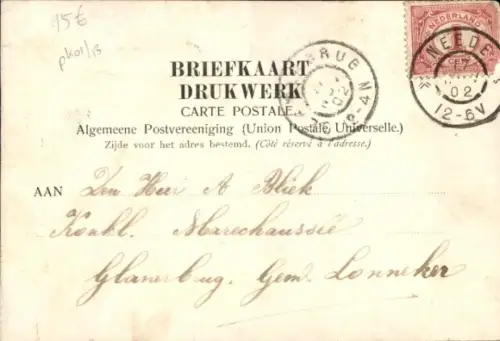 15€
pk01/13
NEDERLAND
NEEDE
17
02
12-6V
BRUG
02
BRIEFKAART
DRUKWERK
CARTE POSTALE.
Algemeene Postvereeniging (Union Postale Universelle.)
Zijde voor het adres bestemd. (Côté réservé à l'adresse.)
AAN Den Heer A Bliek
Konkl. Marechaussée
Glanerbrug. Gem. Lonneker